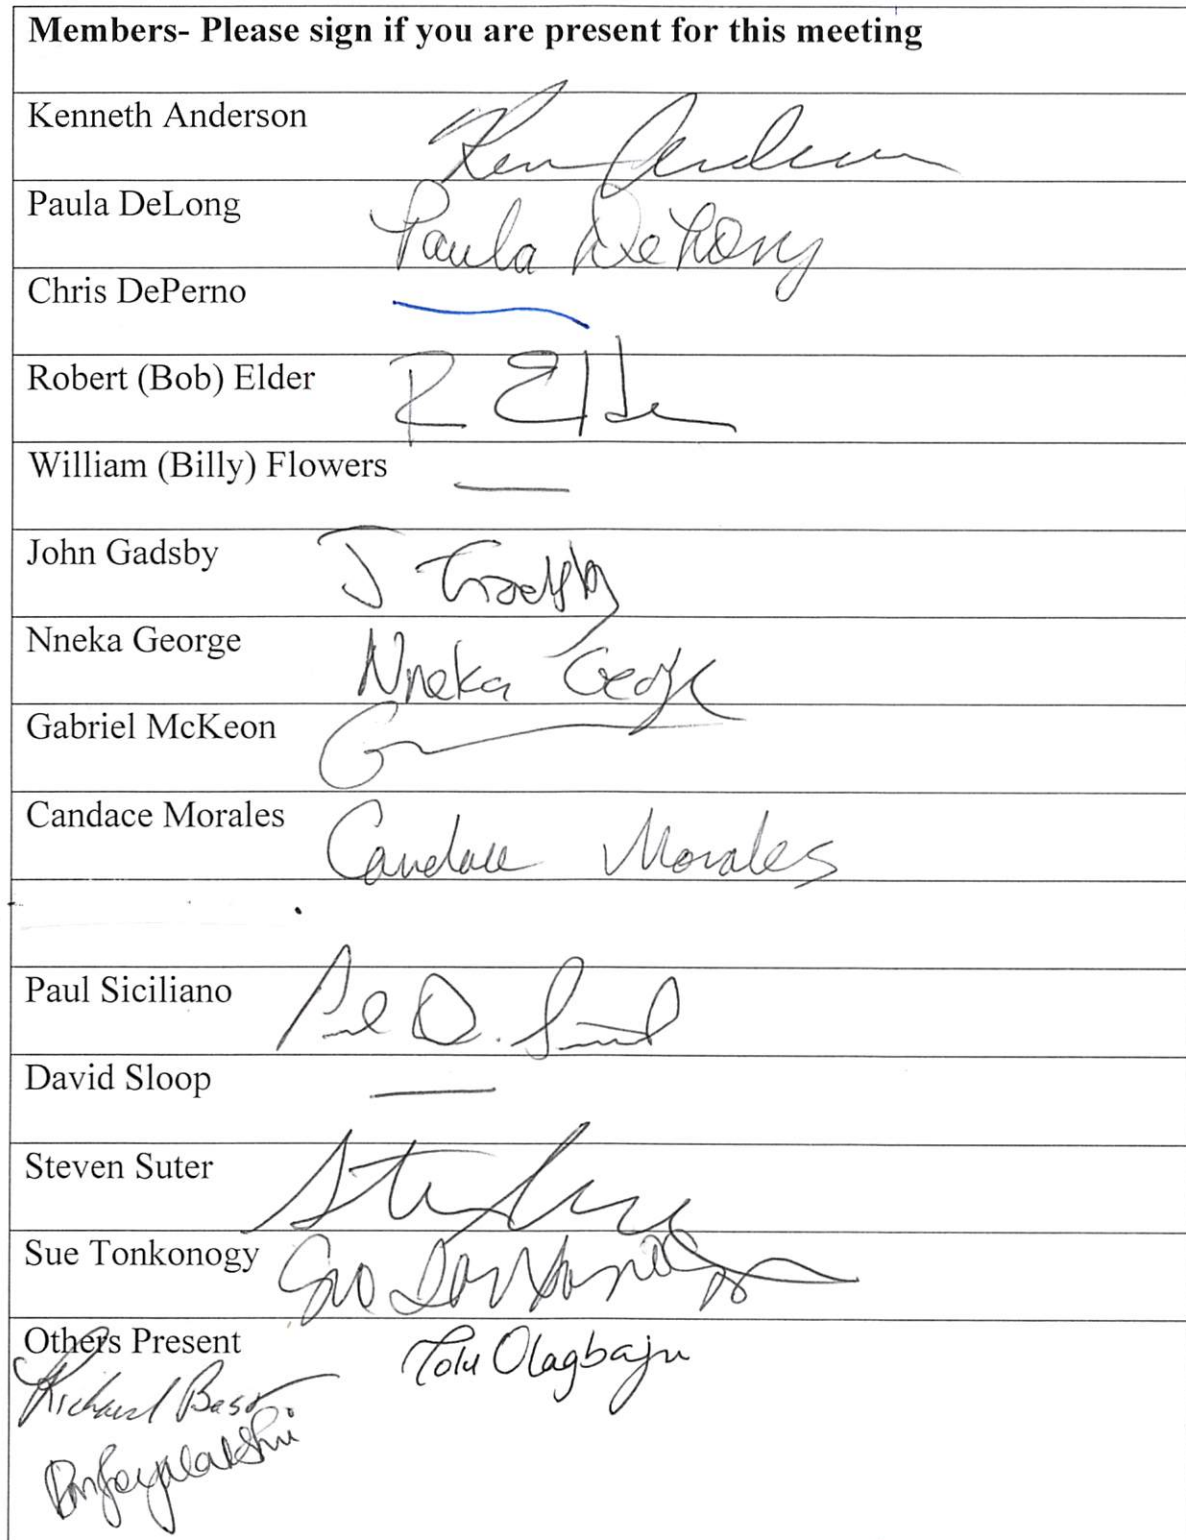 Members- Please sign if you are present for this meeting
Kenneth Anderson Ken Anderson
Paula DeLong Paula DeLong
Chris DePerno
Robert (Bob) Elder R Elder
William (Billy) Flowers
John Gadsby J Gadsby
Nneka George Nneka George
Gabriel McKeon
Candace Morales Candace Morales
Paul Siciliano Paul D.
David Sloop
Steven Suter
Sue Tonkonogy Sue Tonkonogy
Others Present Tolu Olagbaju
Richard